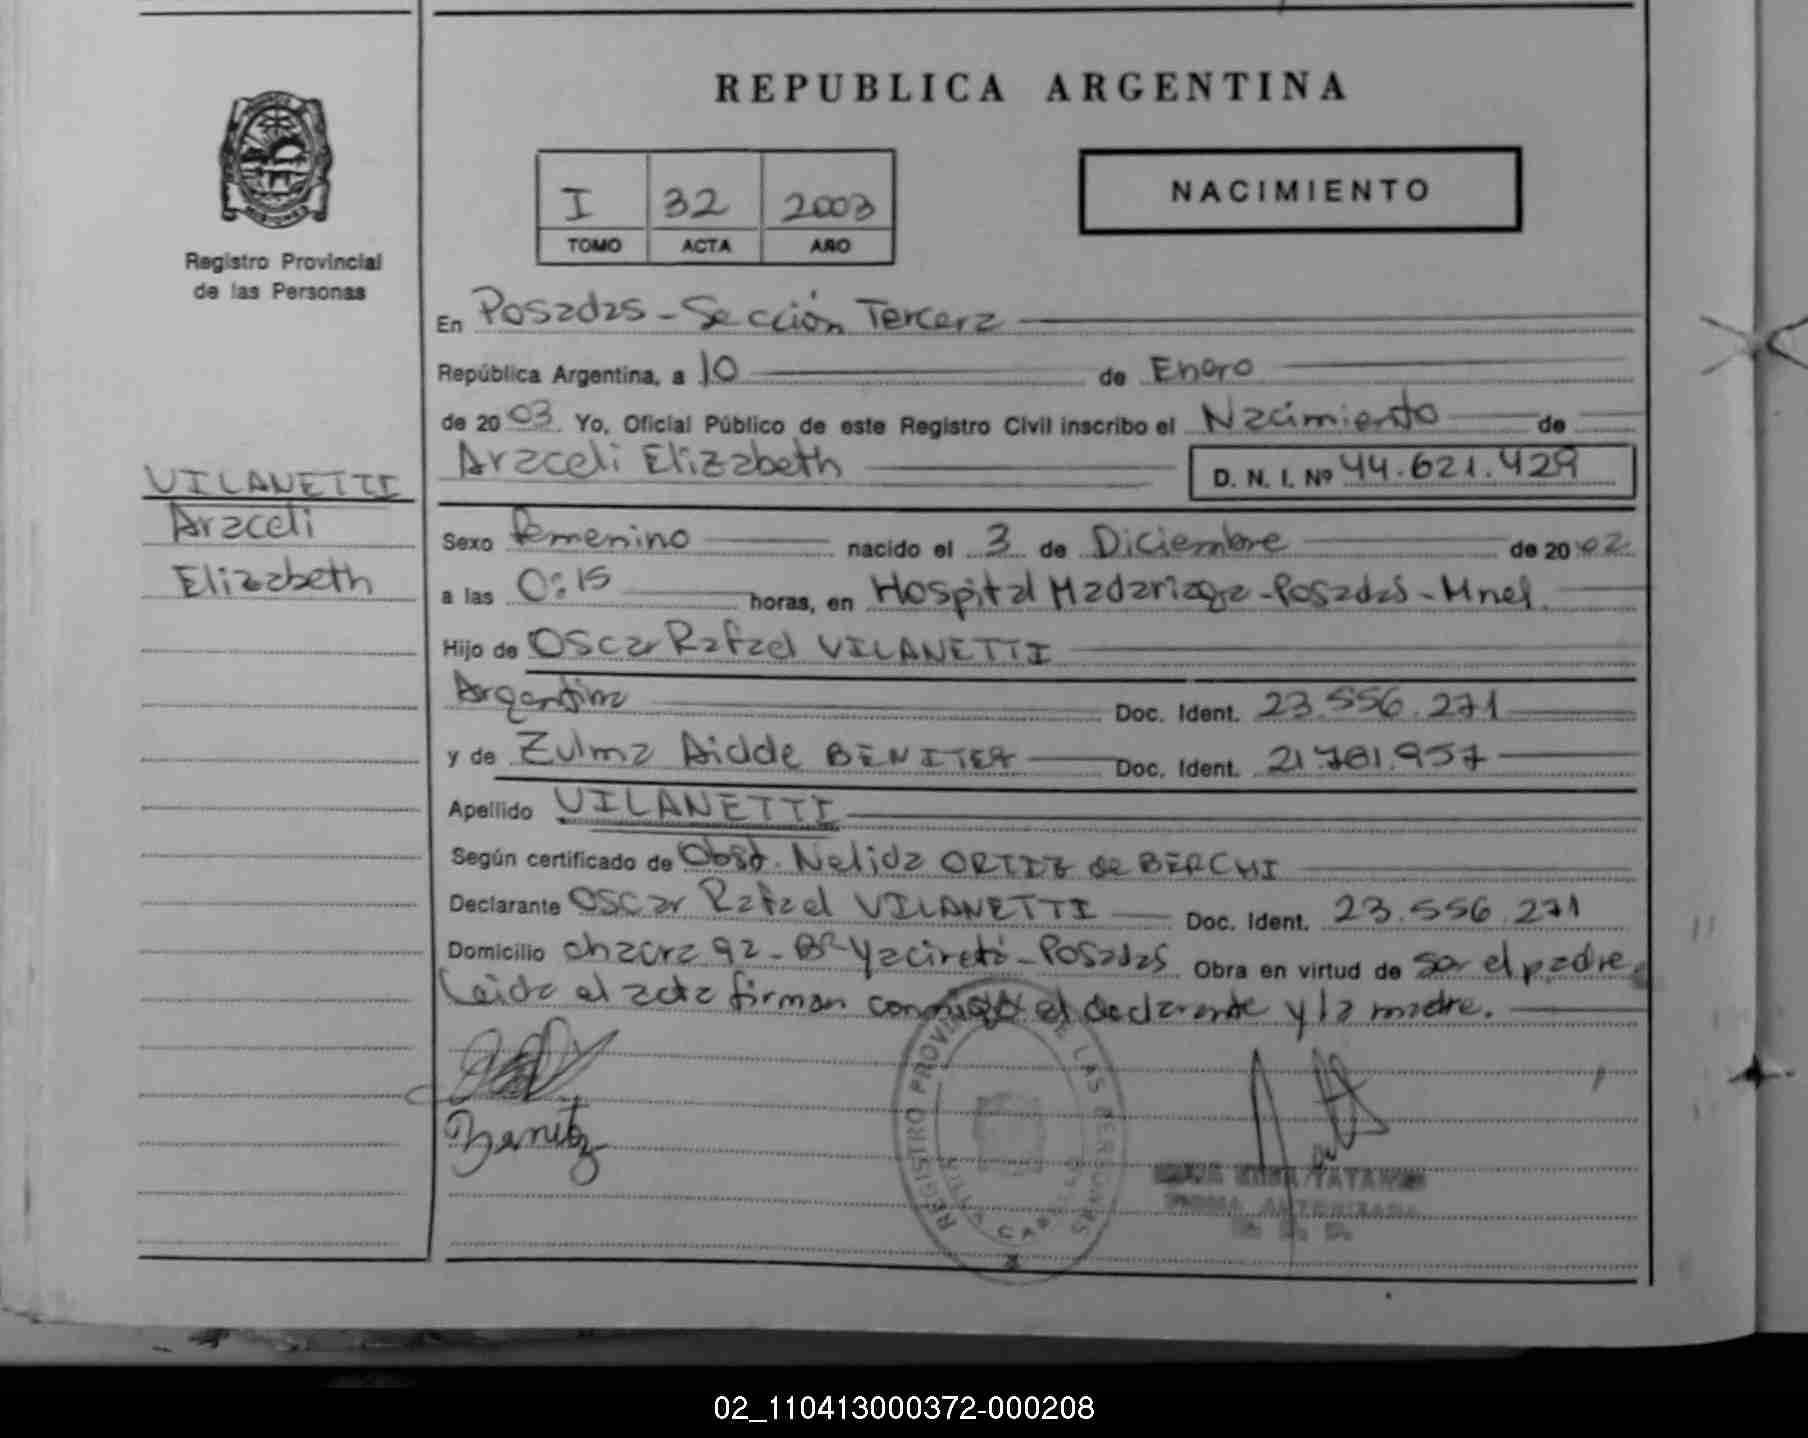 REPUBLICA ARGENTINA
MISIONES
Registro Provincial
de las Personas
I 32 2003
TOMO ACTA AÑO
NACIMIENTO
VILANETTI
Araceli
Elizabeth
En Posadas - Sección Tercera
República Argentina, a 10 de Enero
de 2003 Yo, Oficial Público de este Registro Civil inscribo el Nacimiento de
Araceli Elizabeth D. N. I. Nº 44.621.429
Sexo femenino nacido el 3 de Diciembre de 2002
a las 0:15 horas, en Hospital Madariaga - Posadas - Mnes.
Hijo de Oscar Rafael VILANETTI
Argentina Doc. Ident. 23.556.271
y de Zulma Aidde BENITEZ Doc. Ident. 21.781.957
Apellido VILANETTI
Según certificado de Obst. Nelida ORTIZ de BERCHI
Declarante Oscar Rafael VILANETTI Doc. Ident. 23.556.271
Domicilio chacra 92 - Bº Yacireta - Posadas Obra en virtud de ser el padre
Leida el acta firman conmigo el declarante y la madre.
Benitez
REGISTRO PROVINCIAL DE LAS PERSONAS
FIRMA AUTORIZADA
02_110413000372-000208